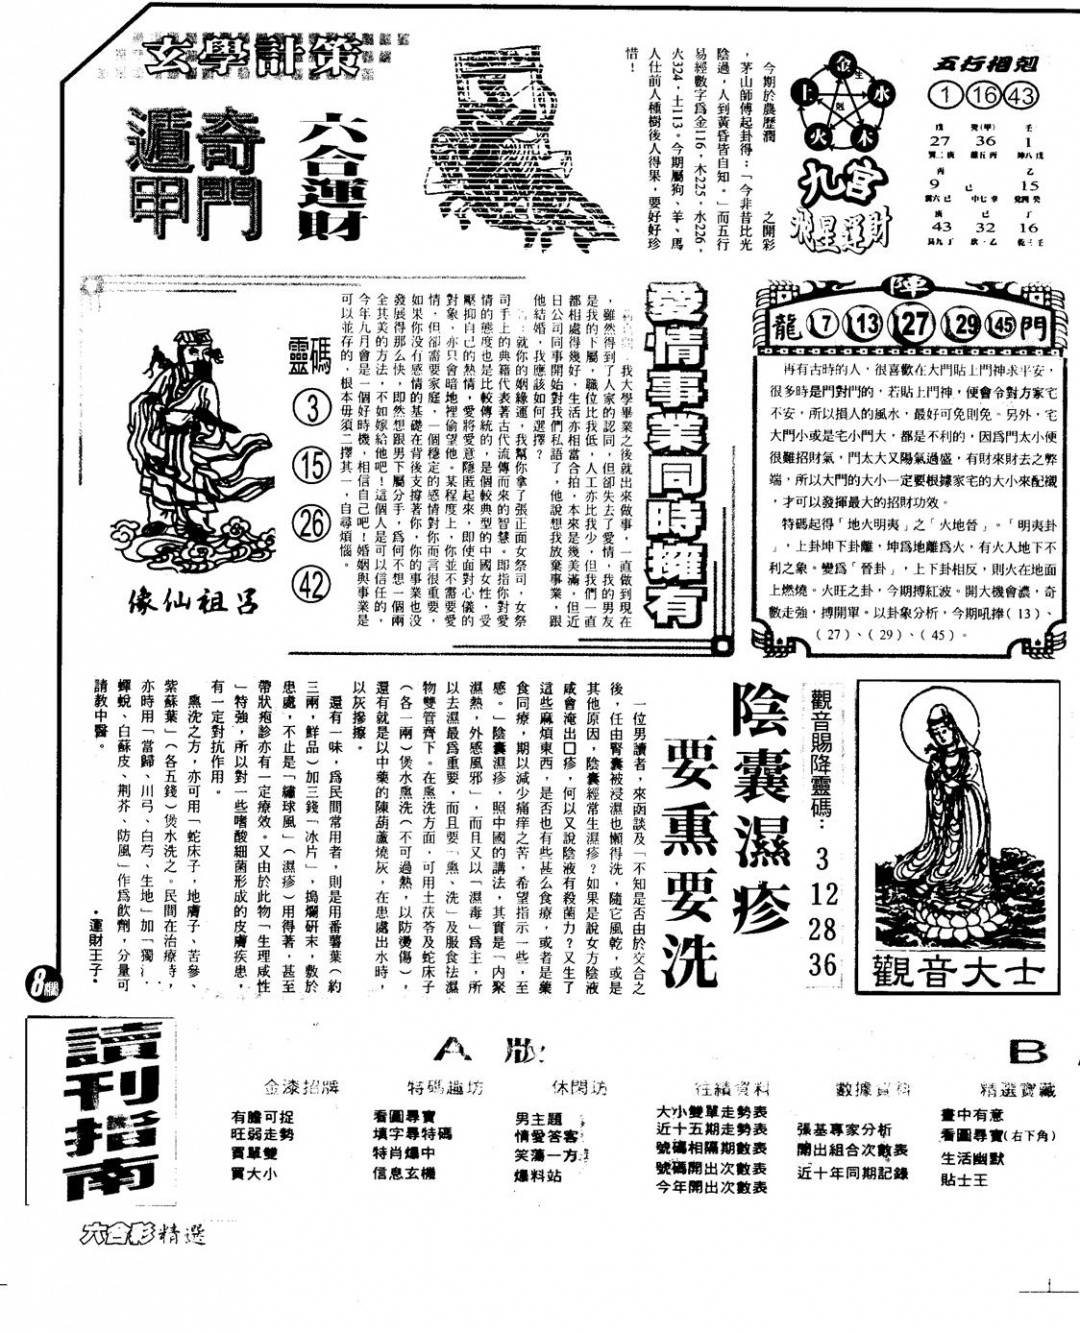 玄學計策
奇門
遁甲
六合運財
今期於農歷潤　　之開彩
，茅山師傅起卦得：「今非昔比光
陰過，人到黃昏皆自知。」而五行
易經數字為金116，木225，水226，
火324，土113。今期屬狗、羊、馬
人仕前人種樹後人得果，要好好珍
惜！
金
生
水
木
火
土
剋
九宮
飛星運財
五行相剋
1 16 43
戊 癸(甲) 壬
27 36 1
丙 乙
9 己 15
43 32 16
愛情事業同時擁有
，我大學畢業之後就出來做事，一直做到現在
，雖然得到了人家的認同，但卻失去了愛情，我的男友
是我的下屬，職位比我低，人工亦比我少，但我們一直
都相處得幾好，生活亦相當合拍，本來是幾美滿，但近
日公司同事開始對我們私語了，他說想我放棄事業，跟
他結婚，我應該如何選擇？
：就你的姻緣運，我幫你拿了張正面女祭司，女祭
司手上的典籍代表著古代流傳而來的智慧。即指你對愛
情的態度也是比較傳統的，是個較典型的中國女性，受
壓抑自己的熱情，愛將愛意隱匿起來，即使面對心儀的
對象，亦只會暗地裡偷望他。某程度上，你並不需要愛
情，但卻需要家庭，一個穩定的感情對你而言很重要，
如果你没有感情的基礎在背後支撐著你，你的事業也没
發展得那么快，即然想跟男下屬分手，為何不想一個兩
全其美的方法，不如嫁給他吧！這個人是可以信任的，
今年九月會是一個好時機，相信自己吧！婚姻與事業是
可以並存的，根本毋須二擇其一，自尋煩惱。
靈碼
3
15
26
42
呂祖仙像
陣
龍 7 13 27 29 45 門
再有古時的人，很喜歡在大門貼上門神求平安，
很多時是門對門的，若貼上門神，便會令對方家宅
不安，所以損人的風水，最好可免則免。另外，宅
大門小或是宅小門大，都是不利的，因為門太小便
很難招財氣，門太大又陽氣過盛，有財來財去之弊
端，所以大門的大小一定要根據家宅的大小來配襯
，才可以發揮最大的招財功效。
特碼起得「地火明夷」之「火地晉」。「明夷卦
」，上卦坤下卦離，坤為地離為火，有火入地下不
利之象。變為「晉卦」，上下卦相反，則火在地面
上燃燒。火旺之卦，今期搏紅波。開大機會濃，奇
數走強，搏開單。以卦象分析，今期吼捧（13）、
（27）、（29）、（45）。
觀音賜降靈碼：3 12 28 36
觀音大士
陰囊濕疹
要熏要洗
一位男讀者，來函談及「不知是否由於交合之
後，任由腎囊被浸濕也懶得洗，隨它風乾，或是
其他原因，陰囊經常生濕疹？如果是說女方陰液
咸會淹出口疹，何以又說陰液有殺菌力？又生了
這些麻煩東西，是否也有些甚么食療，或者是藥
食同療，期以減少痛痒之苦，希望指示一些，至
感。」陰囊濕疹，照中國的講法，其實是「内聚
濕熱，外感風邪」，而且又以「濕毒」為主，所
以去濕最為重要，而且要「熏、洗」及服食祛濕
物雙管齊下。在熏洗方面，可用土茯苓及蛇床子
（各一兩）煲水熏洗（不可過熱，以防燙傷），
還有就是以中藥的陳葫蘆燒灰，在患處出水時，
以灰摻擦。
還有一味，為民間常用者，則是用番薯葉（約
三兩，鮮品）加三錢「冰片」，搗爛研末，敷於
患處，不止是「繡球風」（濕疹）用得著，甚至
帶狀疱診亦有一定療效。又由於此物「生理咸性
」特強，所以對一些嗜酸細菌形成的皮膚疾患，
有一定對抗作用。
熏洗之方，亦可用「蛇床子，地膚子、苦參、
紫蘇葉」（各五錢）煲水洗之。民間在治療時，
亦時用「當歸、川弓、白芍、生地」加「獨
蟬蛻、白蘇皮、荆芥、防風」作為飲劑，分量可
請教中醫。
・運財王子・
8
讀刊指南
A 版:
B
金漆招牌
有膽可捉
旺弱走勢
買單雙
買大小
特碼趣坊
看圖尋寶
填字尋特碼
特肖爆中
信息玄機
休閑坊
男主題
情愛答客
笑蕩一方
爆料站
往績資料
大小雙單走勢表
近十五期走勢表
號碼相隔期數表
號碼開出次數表
今年開出次數表
數據資料
張基專家分析
開出組合次數表
近十年同期記錄
精選寶藏
畫中有意
看圖尋寶(右下角)
生活幽默
貼士王
六合彩精選